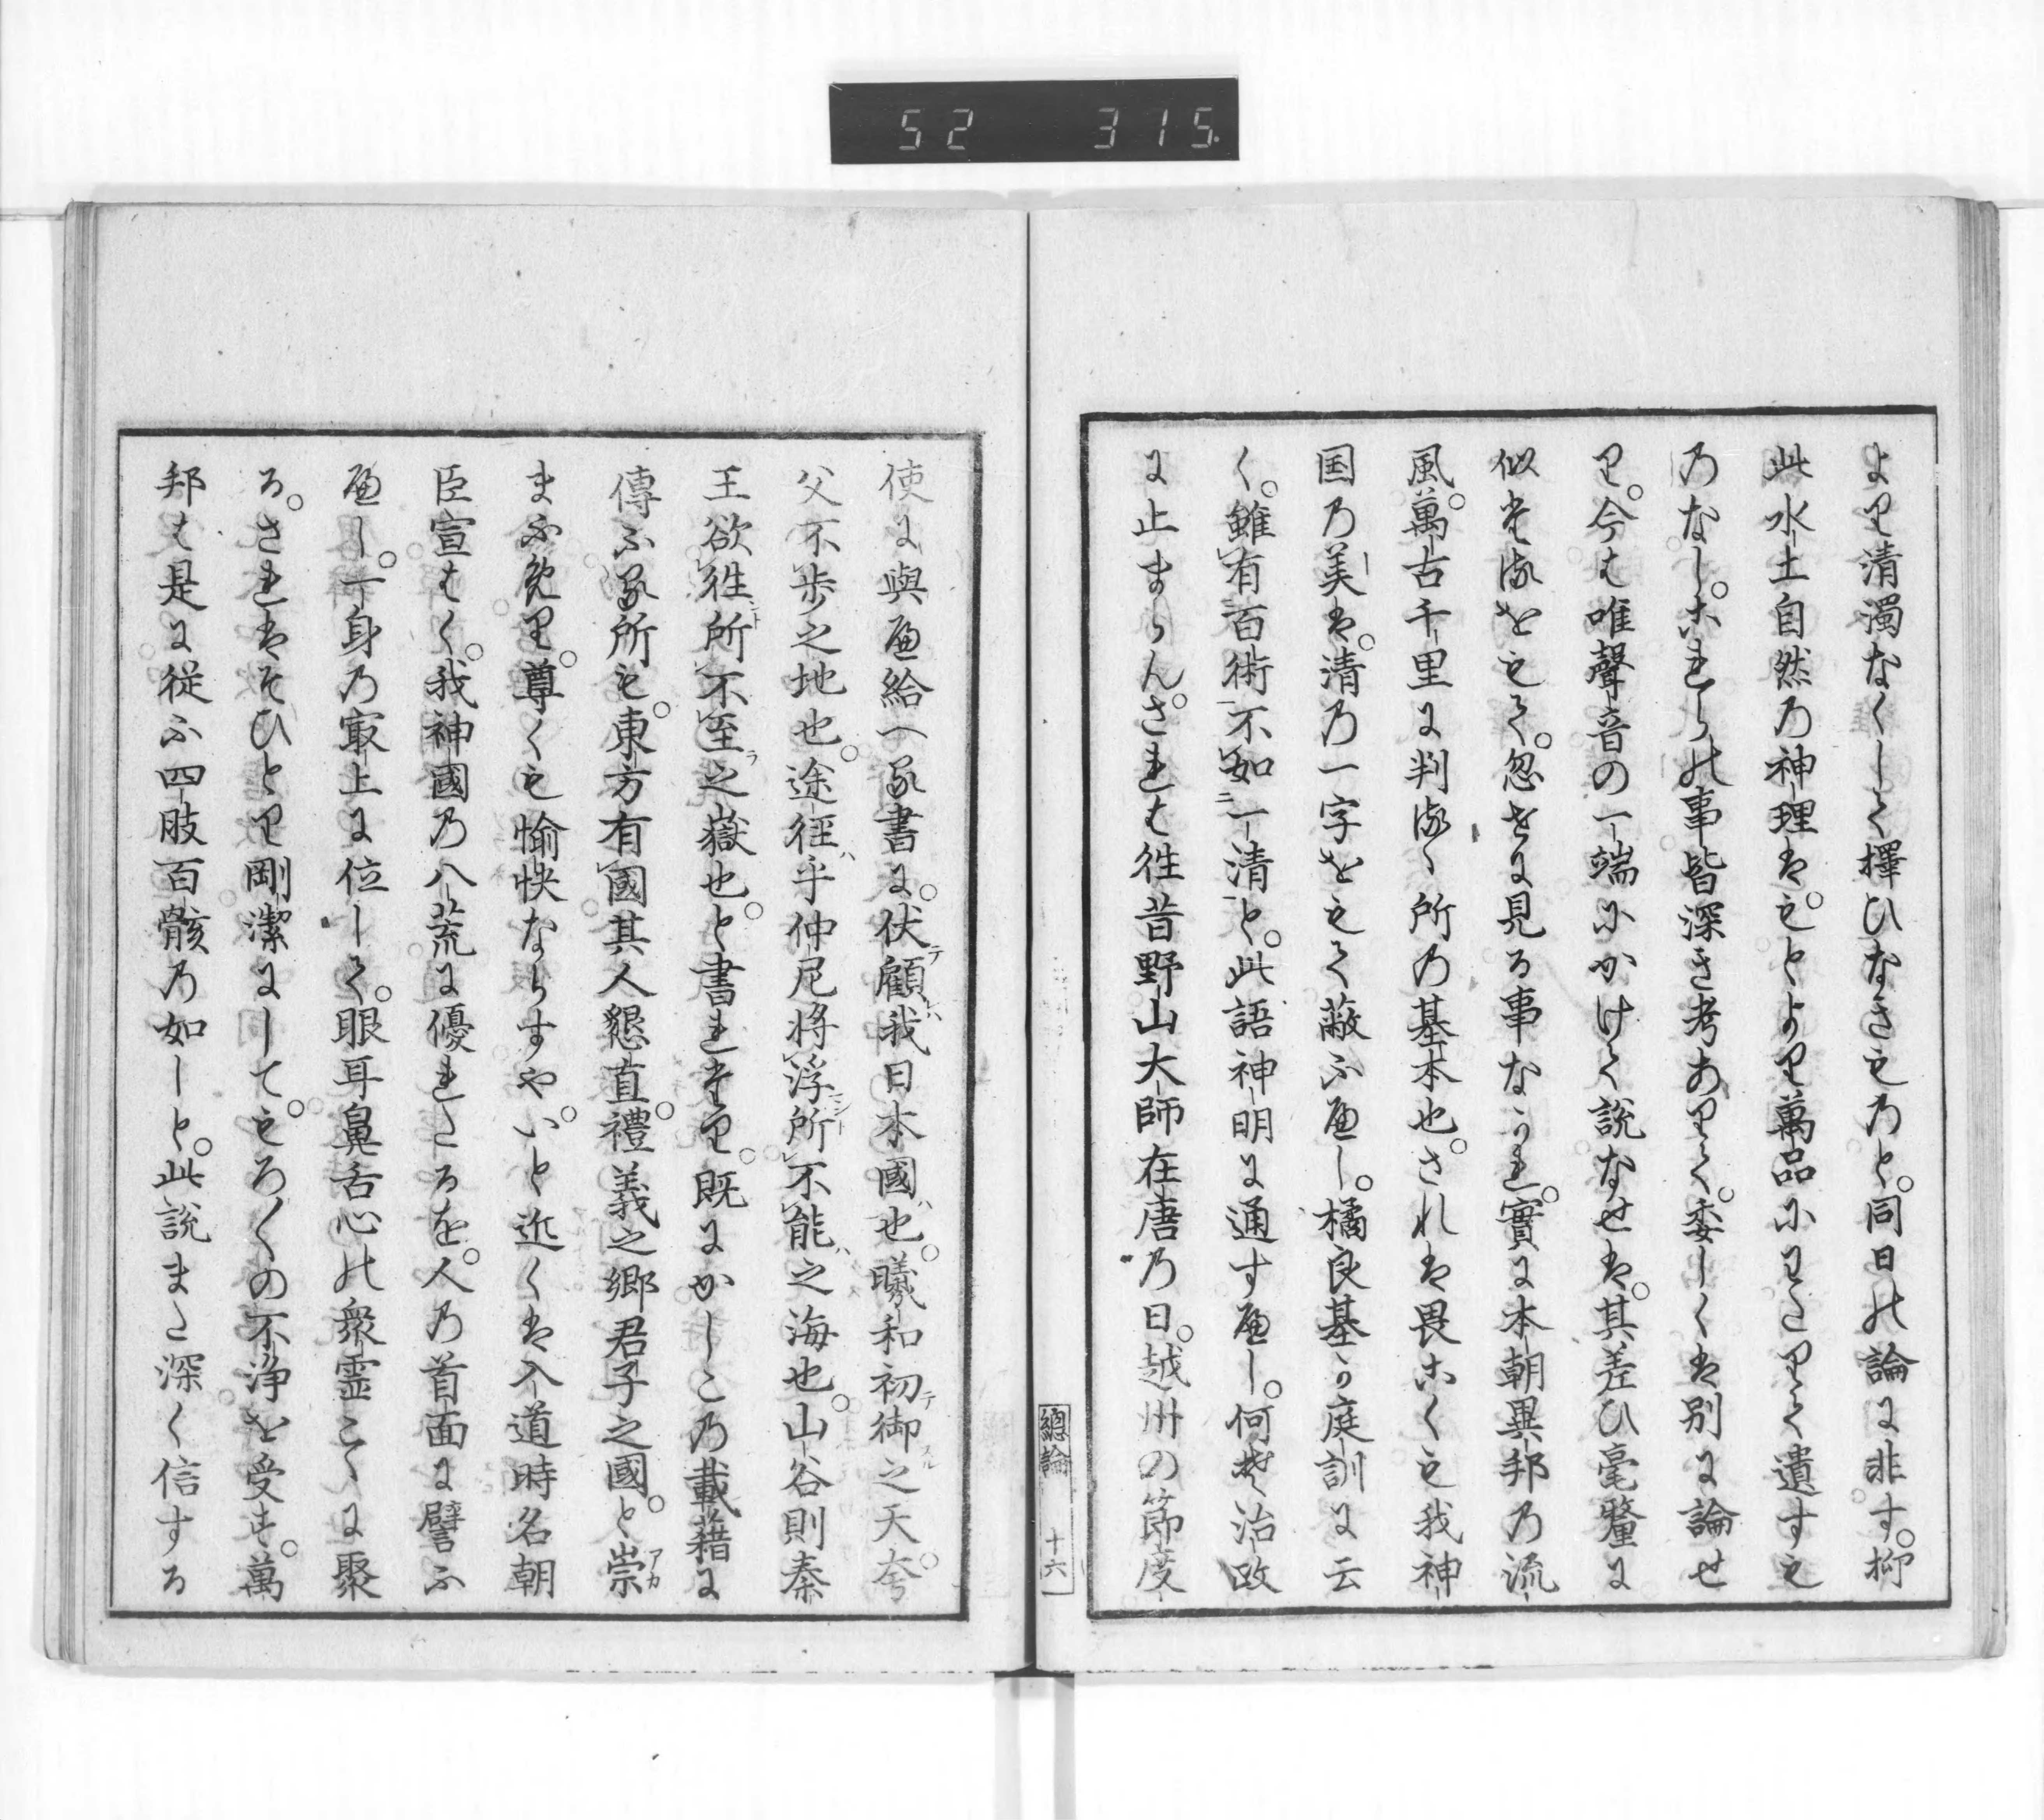 52 315
より清濁なくして擇ひなきものと。同日の論に非す。抑
此水土自然の神理は。もとより萬品にわたりて遺すも
のなし。これらの事皆深き考ありて。委しくは別に論せ
り。今は唯聲音の一端にかけて説なせは。其差ひ毫釐に
似たるをもて。忽せに見る事なかれ。實に本朝異邦の流
風。萬古千里に判るゝ所の基本也。されは畏こくも我神
国の美は。清の一字をもて蔽ふへし。橘良基の庭訓に云
く。雖有百術不如一清と。此語神明に通すへし。何そ治政
に止まらん。されは徃昔野山大師在唐の日。越州の節度
總論 十六
使に與へ給へる書に。伏顧我日本國也。曦和初御之天。夸
父不歩之地也。途徑乎仲尼將浮所不能之海也。山谷則秦
王欲徃所不至之嶽也。と書れたり。既にかしこの載籍に
傳ふる所も。東方有國其人懇直。禮義之郷君子之國。と崇
まふめり。尊くも愉快ならすや。いと近くは入道時名朝
臣宣はく。我神國の八荒に優れたるを。人の首面に譬ふ
へし。一身の最上に位して。眼耳鼻舌心の衆霊こゝに聚
る。されはそひとり剛潔にして。もろ〱の不浄を受す。萬
邦は是に従ふ四肢百骸の如しと。此説また深く信する